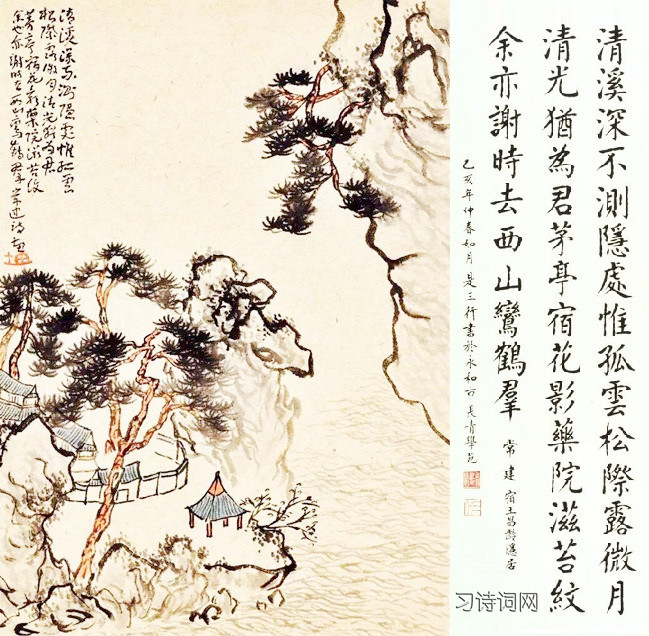 清溪深不測隱處惟孤雲松際露微月
清光猶為君茅亭宿花影藥院滋苔紋
余亦謝時去西山鸞鶴羣 常建 宿王昌齡隱居
己亥年仲春如月是三行書於永和
清溪深不測隱處惟孤雲
松際露微月清光猶為君
茅亭宿花影藥院滋苔紋
余亦謝時去西山鸞鶴羣 常建詩意
习诗词网